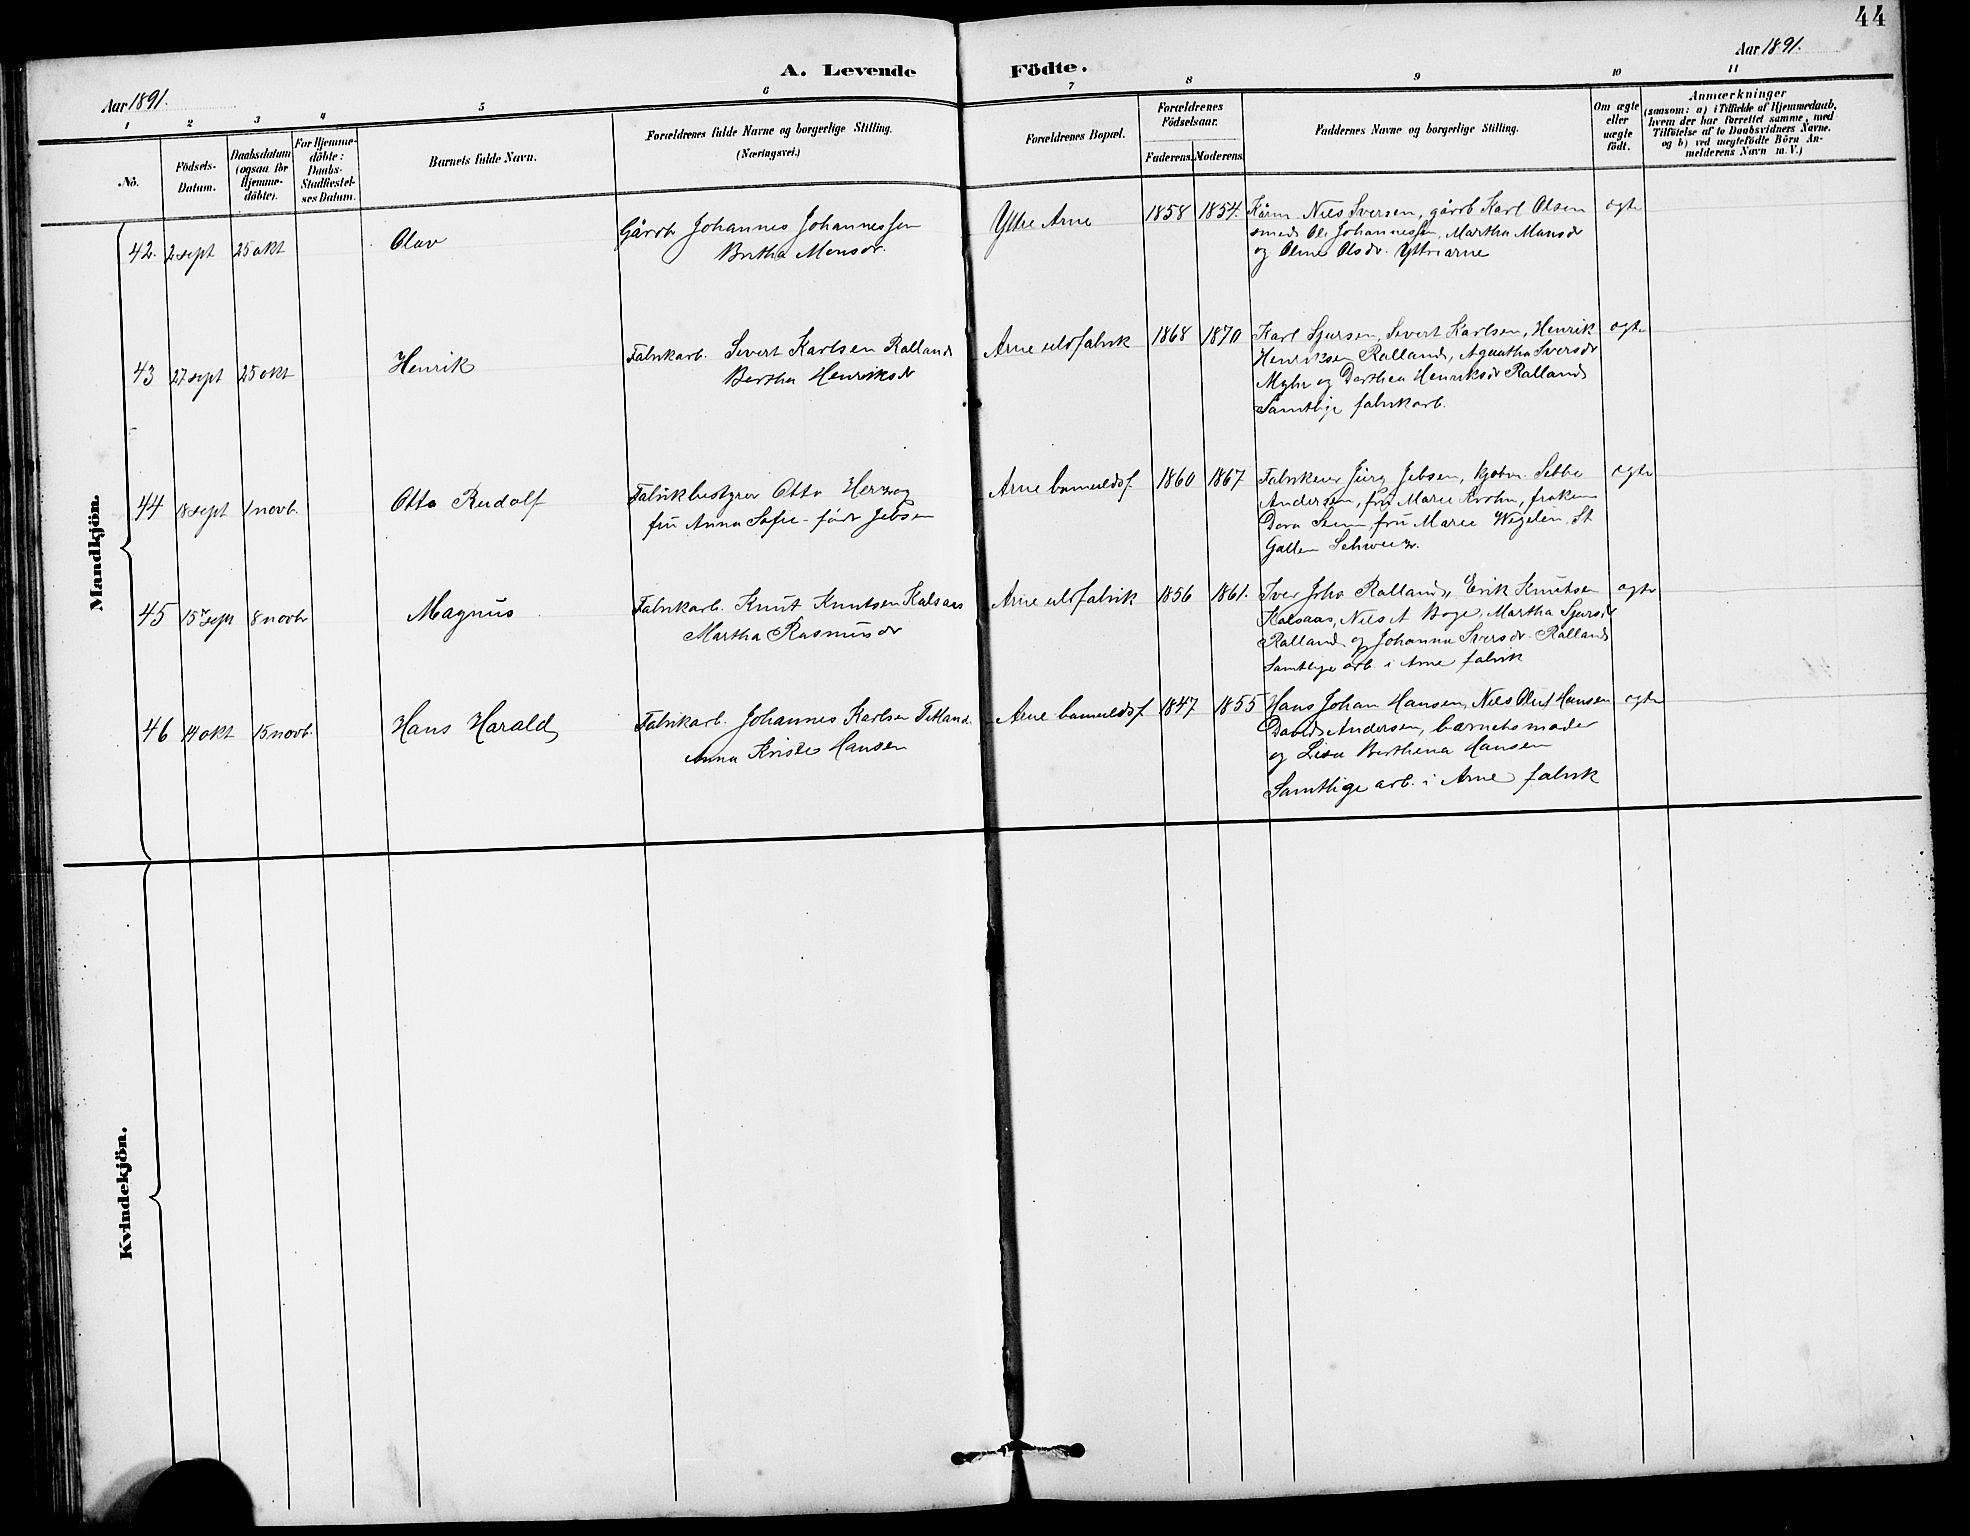 44
Aar 1891.
Aar 1891.
A. Levende Födte.
1 2 3 4 5 6 7 8 9 10 11
No.
Födsels-Datum.
Daabsdatum (ogsaa for Hjemme-döbte).
For Hjemme-döbte: Daabs-Stadfæstel-ses Datum.
Barnets fulde Navn.
Forældrenes fulde Navne og borgerlige Stilling.
(Næringsvei.)
Forældrenes Bopæl.
Forældrenes Födselsaar.
Faderens. Moderens.
Faddernes Navne og borgerlige Stilling.
Om ægte eller uægte født.
Anmærkninger
(saasom: a) i Tilfælde af Hjemmedaab,
hvem der har forrettet samme, med
Tilføielse af to Daabsvidners Navne.
og b) ved uægtefödte Börn An-
melderens Navn m. V.)
Mandkjön.
42. 2 sept 25 okt Olav Gårrb Johannes Johannessen Ytre Arne 1858 1854. Kårm. Nils Iversen, gårrb Karl Olsen ægte
Britha Monsdr. smed Ol. Johannessen, Martha Mansdr
og Oline Olsdr. Ytrearne
43 27 sept 25 okt Henrik Fabrikarb. Severt Karlsen Ralland Arne uldfabrik 1868 1870 Karl Sjursen, Severt Karlsen, Henrik ægte
Bertha Henriksdr Henriksen Ralland, Agaatha Iversdr
Myhr og Dorthea Henriksdr Ralland
Samtlige fabrikarb.
44 18 sept 1 novb. Otto Rudolf Fabrikbestyrer Otto Herzog Arne bomuldsf. 1860 1867 Fabrikeier Jürg Jebsen, kjøbm. Sethe ægte
fru Anna Sofie født Jebsen Andersen, fru Marie Krohn, frøken
Dora Seim, fru Marie Wegelin, St
Gallen Schweiz.
45 15 sept 8 novbr Magnus Fabrikarb. Knut Knutsen Kalsaas Arne uldfabrik 1856 1861. Iver Joha Ralland, Erik Knutsen ægte
Martha Rasmusdr Kalsaas, Nils A Boge, Martha Sjursdr
Ralland og Johanna Iversdr. Ralland
Samtlige arb. i Arne fabrik
46 14 okt 15 novb. Hans Harald Fabrikarb. Johannes Karlsen Tetland Arne bomuldsf. 1847 1855 Hans Johan Hansen, Nils Oluf Hansen ægte
Anna Kristes Hansen David Andersen, barnets moder
og Lisa Berthina Hansen
Samtlige arb. i Arne fabrik
Kvindekjön.